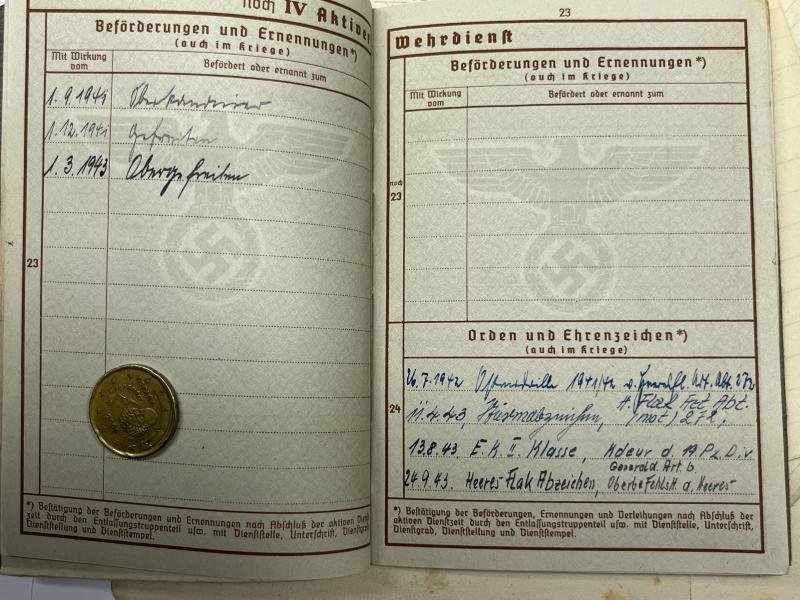 noch IV Aktiver
Beförderungen und Ernennungen*)
(auch im Kriege)
Mit Wirkung vom
Befördert oder ernannt zum
1.9.1941 Oberkanonier
1.12.1941 Gefreiten
1.3.1943 Obergefreiten
23
*) Bestätigung der Beförderungen und Ernennungen nach Abschluß der aktiven Dienst
zeit durch den Entlassungstruppenteil usw. mit Dienststelle, Unterschrift, Dienstgrad,
Dienststellung und Dienststempel.
23
Wehrdienst
Beförderungen und Ernennungen*)
(auch im Kriege)
Mit Wirkung vom
Befördert oder ernannt zum
noch
23
Orden und Ehrenzeichen*)
(auch im Kriege)
24
26.7.1942 Ostmedaille 1941/42 Art. Abt. 272
H. Flak Art. Abt.
11.4.43, Sturmabzeichen, (mot) 272,
13.8.43. E.K. II. Klasse, Kdeur d. 19. Pz. Div.
General d. Art. b.
24.9.43. Heeres Flak Abzeichen, Oberbefehlsh. d. Heeres
*) Bestätigung der Beförderungen, Ernennungen und Verleihungen nach Abschluß der
aktiven Dienstzeit durch den Entlassungstruppenteil usw. mit Dienststelle, Unterschrift,
Dienstgrad, Dienststellung und Dienststempel.